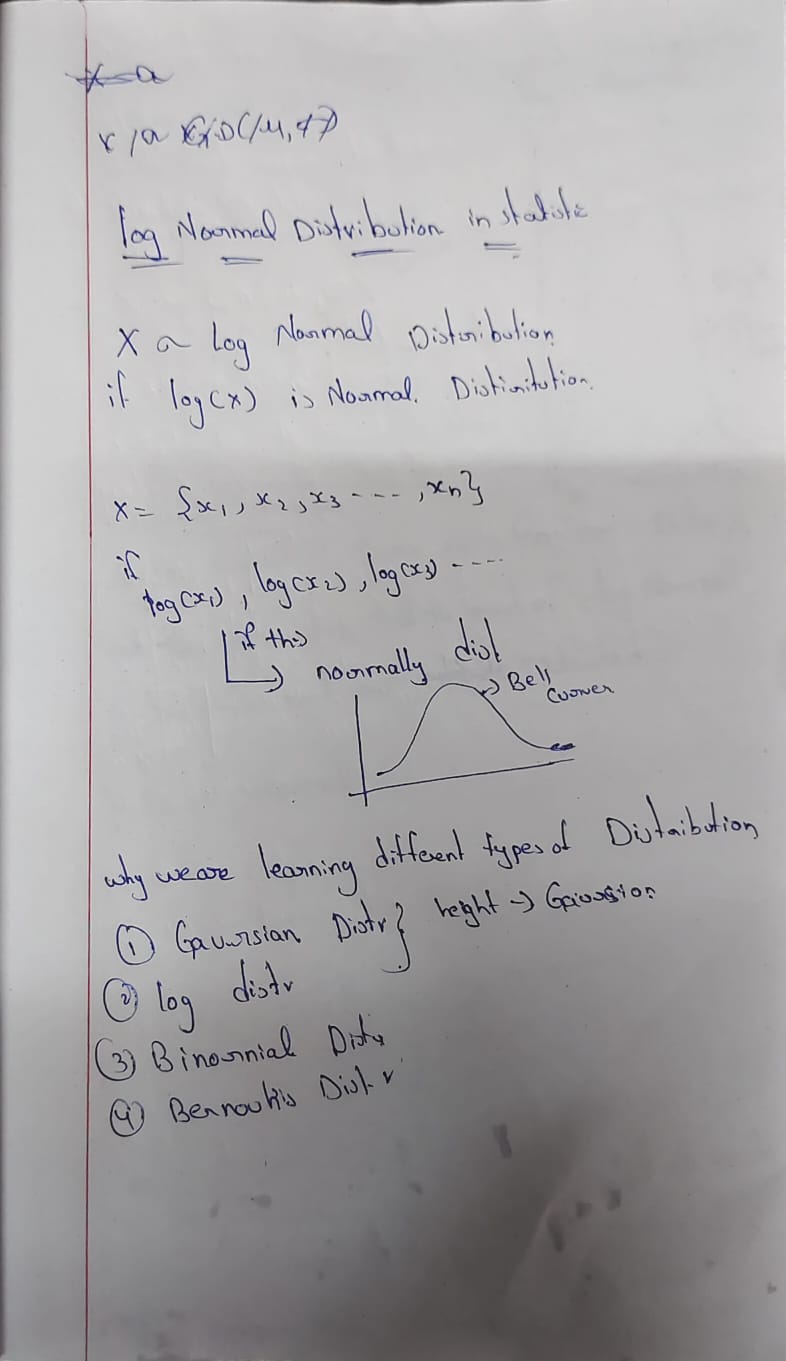 x
log Normal Distribution in
X ~ Log Normal Distribution
if log(x) is Normal. Distinitution.
x = {x₁, x₂, x₃ - - - -, xn}
if
log(x₁), log(x₂), log(x₃) - - - -
if this
normally dist
Bell
Cuorver
why we are learning different types of Distribution
① Gaussian Distr } height → Gaussion
② log distr
③ Binomial Distr
④ Bernoulis Distr